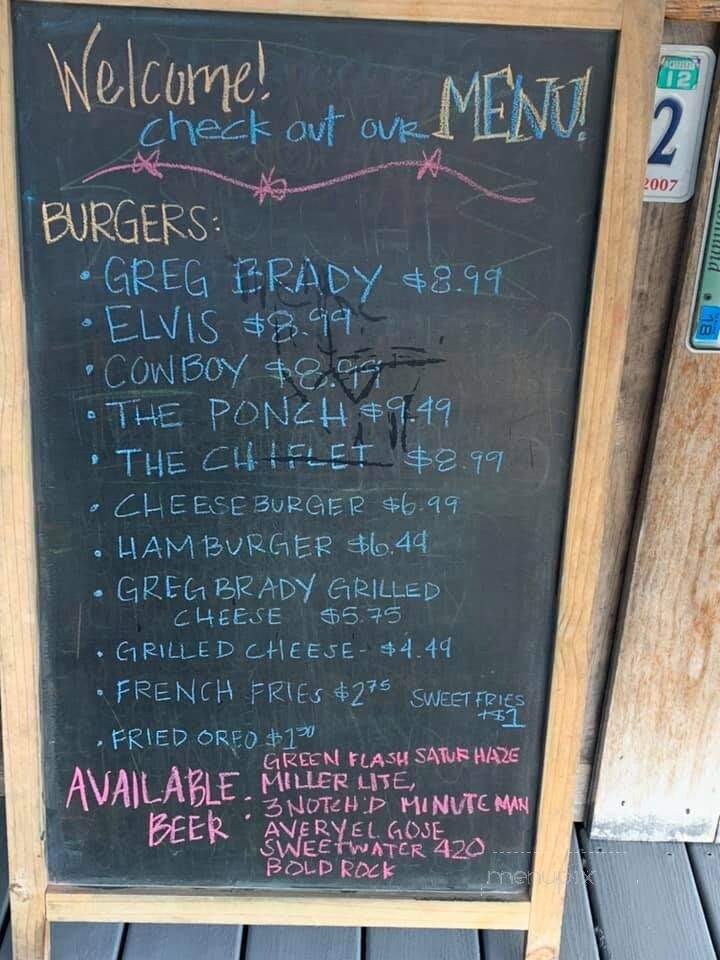 Welcome!
check out our MENU!
BURGERS:
• GREG BRADY $8.99
• ELVIS $8.99
• COWBOY $8.99
• THE PONCH $9.49
• THE CHIFLET $8.99
• CHEESEBURGER $6.99
• HAMBURGER $6.49
• GREG BRADY GRILLED
CHEESE $5.75
• GRILLED CHEESE- $4.49
• FRENCH FRIES $2.75 SWEET FRIES
+$1
• FRIED OREO $1.50
AVAILABLE BEER:
GREEN FLASH SATUR HAZE
MILLER LITE,
3 NOTCH'D MINUTE MAN
AVERY EL GOSE
SWEETWATER 420
BOLD ROCK
12
2
2007
18
menupix